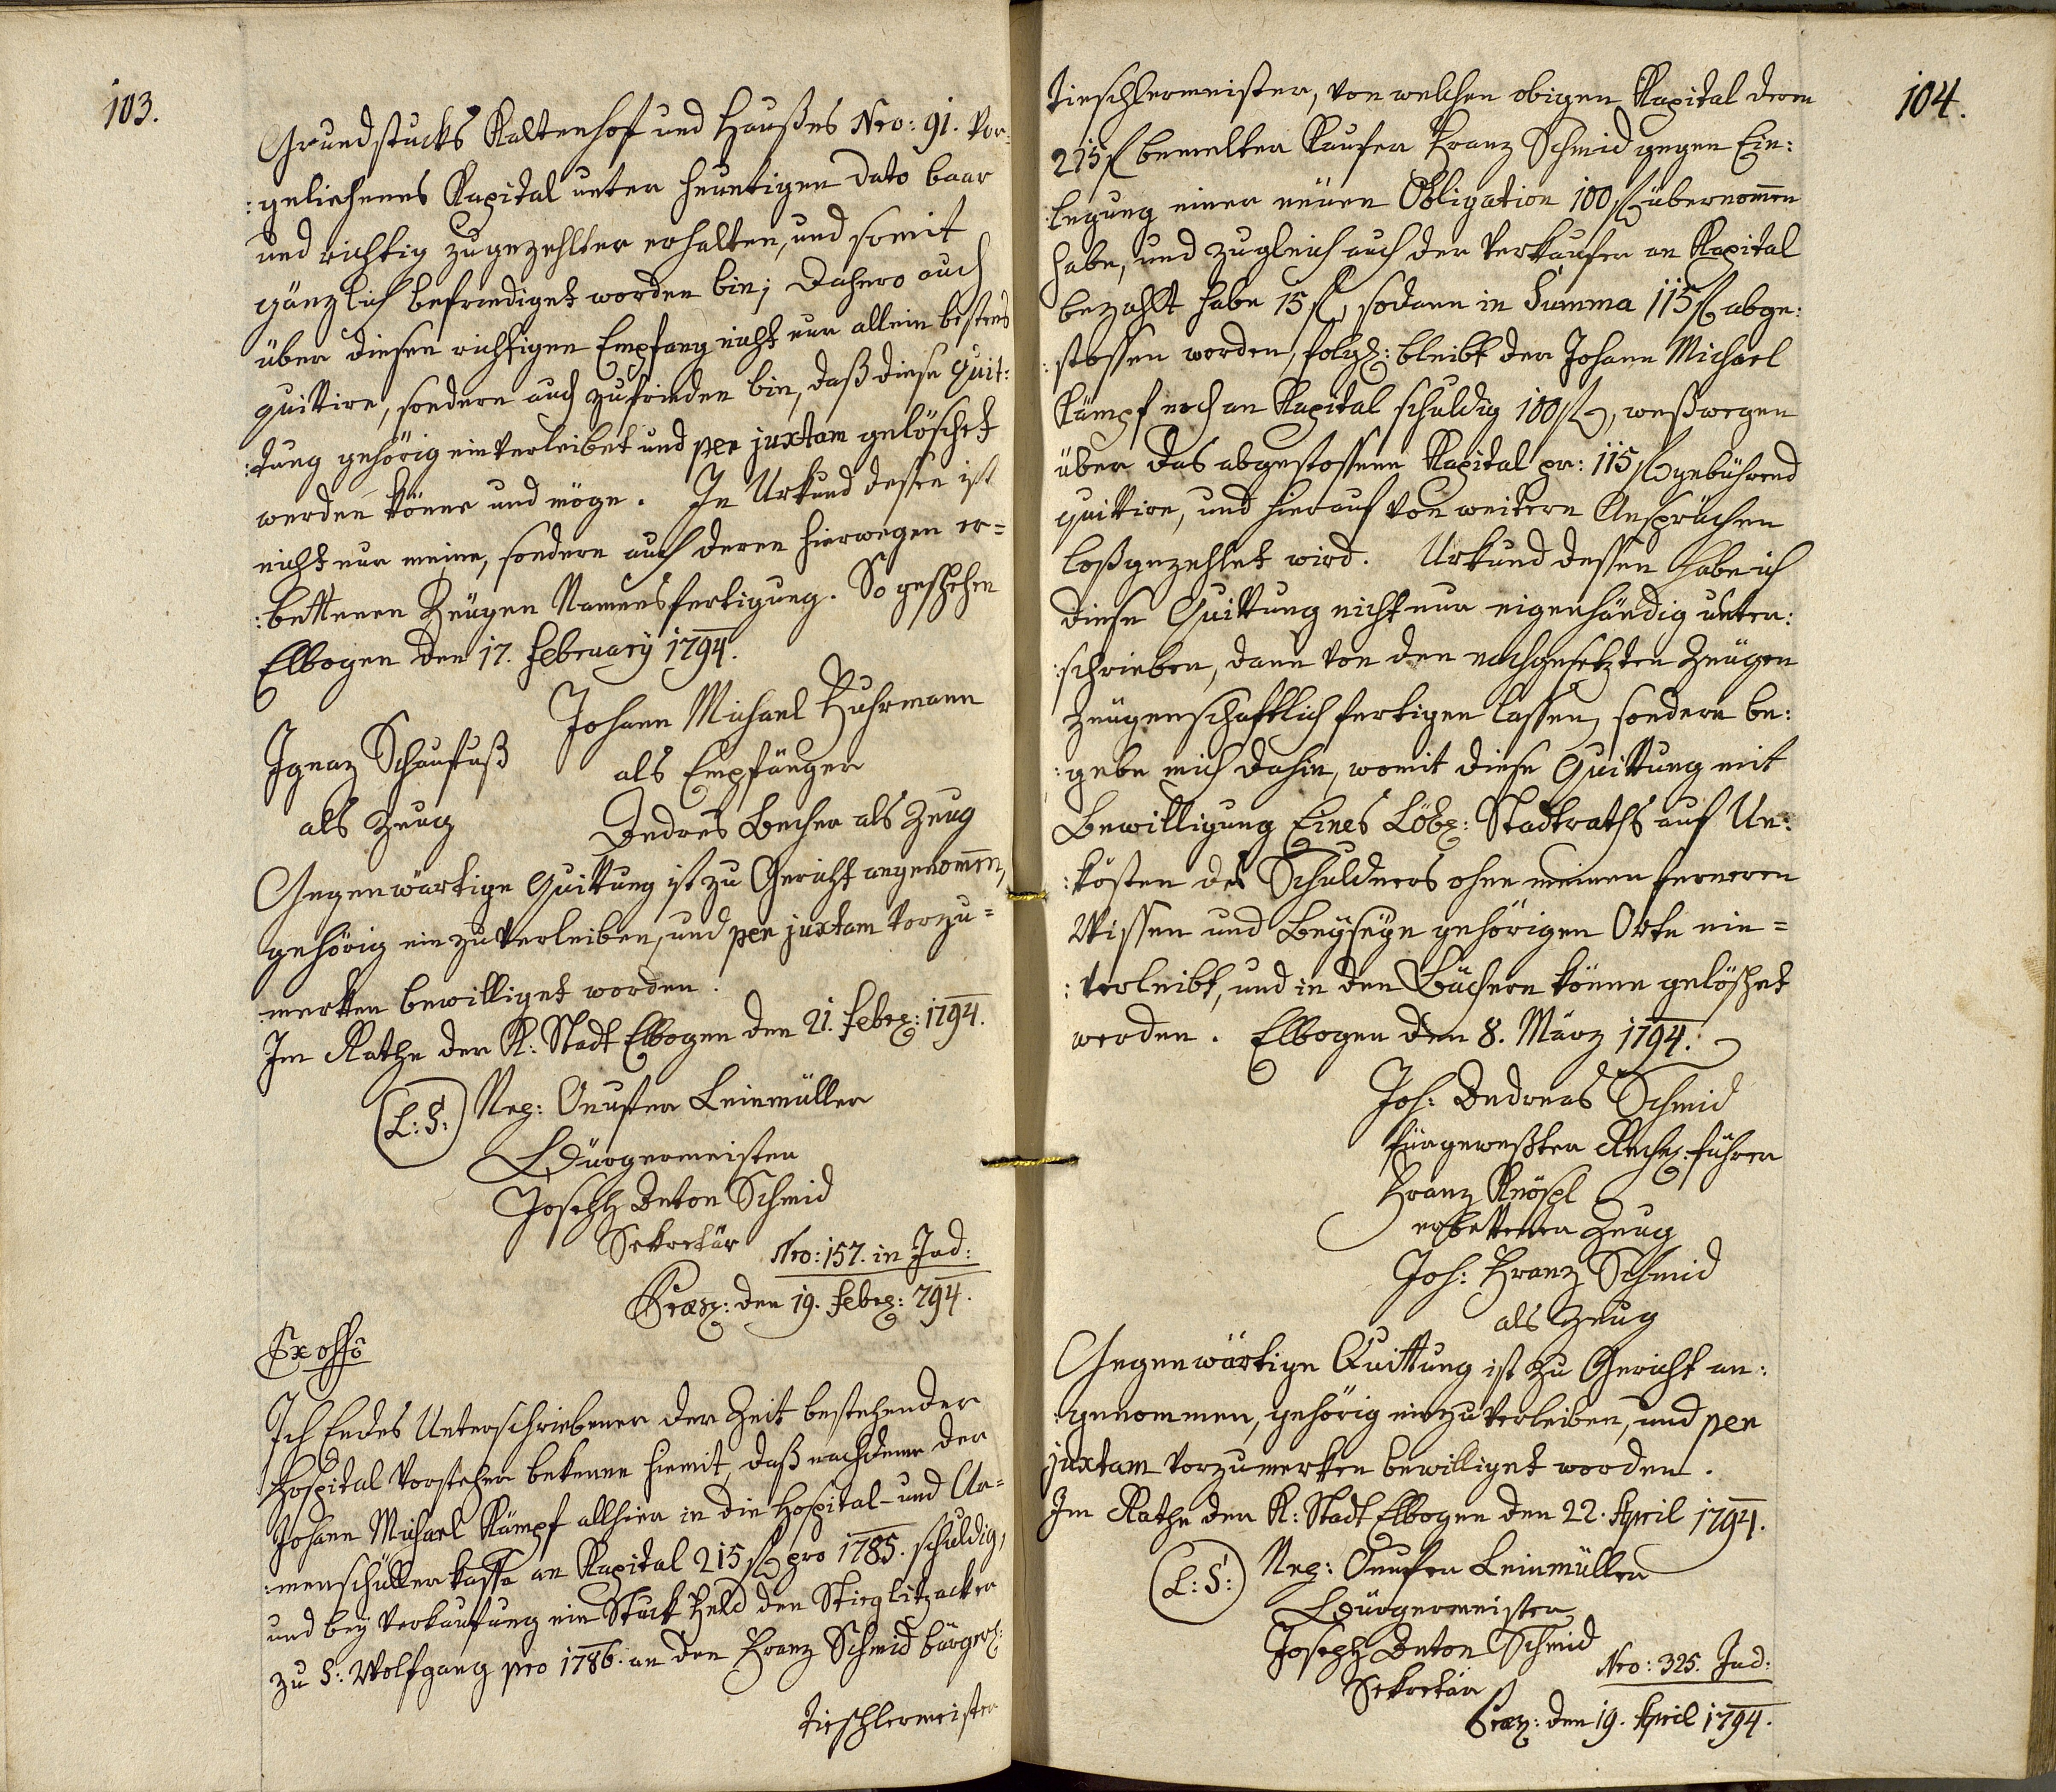 103.
Grundstucks Kaltenhof und Haußes Nro: 91. vor:
:geliehenes Kapital unter heuntigen dato baar
und richtig zugezehlter erhalten, und somit
gänzlich befriediget worden bin; Dahero auch
über diesen richtigen Empfang nicht nur allein bestens
quittire, sondern auch zufrieden bin, daß diese Quit:
:tung gehörig einverleibet und per juxtam gelöschet
werden könne und möge. In Urkund dessen ist
nicht nur meine, sondern auch deren hierwegen er=
:bettenen Zeügen Namensfertigung. So geschehen
Elbogen den 17. February 1794.
Johann Michael Fuhrmann
als Empfänger
Ignaz Schaufuß
als Zeug
Andres Becher als Zeug
Gegenwärtige Quittung ist zu Gericht angenommen,
gehörig einzuverleiben, und per juxtam vorzu=
:merken bewilliget worden.
Im Rathe der K: Stadt Elbogen den 21. Febr: 1794.
(L:S:) Neg: Onufer Leinmüller
Bürgermeister
Joseph Anton Schmid
Sekretär
Nro: 157. in Jud:
Præs: den 19. Febr: 794.
Ex offo
Ich Endes Unterschriebener der Zeit bestehender
Hospital Vorsteher bekenne hiemit, daß nachdeme der
Johann Michael Kämpf allhier in die Hospital- und Ar=
:menschüller kassa an Kapital 215 f pro 1785. schuldig,
und bey Verkaufung ein Stuck Feld den Stieglitzacker
zu S: Wolfgang pro 1786. an den Franz Schmid bürgerl:
Tieschlermeister
104.
Tieschlermeister, von welchen obigen Kapital deren
215 f bemelter Kaufer Franz Schmid gegen Ein:
:legung einer neuen Obligation 100 f übernommen
habe, und zugleich auch der Verkaufer an Kapital
bezahlt habe 15 f, sodann in Summa 115 f abge:
:stossen worden, folgl: bleibt der Johann Michael
Kämpf noch an Kapital schuldig 100 f, weßwegen
über das abgestossene Kapital pr: 115 f gebührend
quittire, und hierauf von weitern Ansprüchen
loßgezehlet wird. Urkund dessen habe ich
diese Quittung nicht nur eigenhändig unter:
:schrieben, dann von den nachgesetzten Zeügen
Zeügenschaftlich fertigen lassen, sondern be:
:gebe mich dahin, womit diese Quittung mit
Bewilligung Eines Löbl: Stadtraths auf Un:
:kösten des Schuldners ohne meinen ferneren
Wissen und Beyseyn gehörigen Orts ein=
:verleibt, und in den Büchern könne gelöschet
werden. Elbogen den 8. März 1794.
Joh: Andreas Schmid
fürgeweßter Rechn: führer
Franz Knöspl
erbettener Zeug
Joh: Franz Schmid
als Zeug
Gegenwärtige Quittung ist zu Gericht an:
:genommen, gehörig einzuverleiben, und per
juxtam vorzumerken bewilliget worden.
Im Rathe der K: Stadt Elbogen den 22. April 1794.
(L:S:) Neg: Onufer Leinmüller
Bürgermeister
Joseph Anton Schmid
Sekretär
Nro: 325. Jud:
Præs: den 19. April 1794.